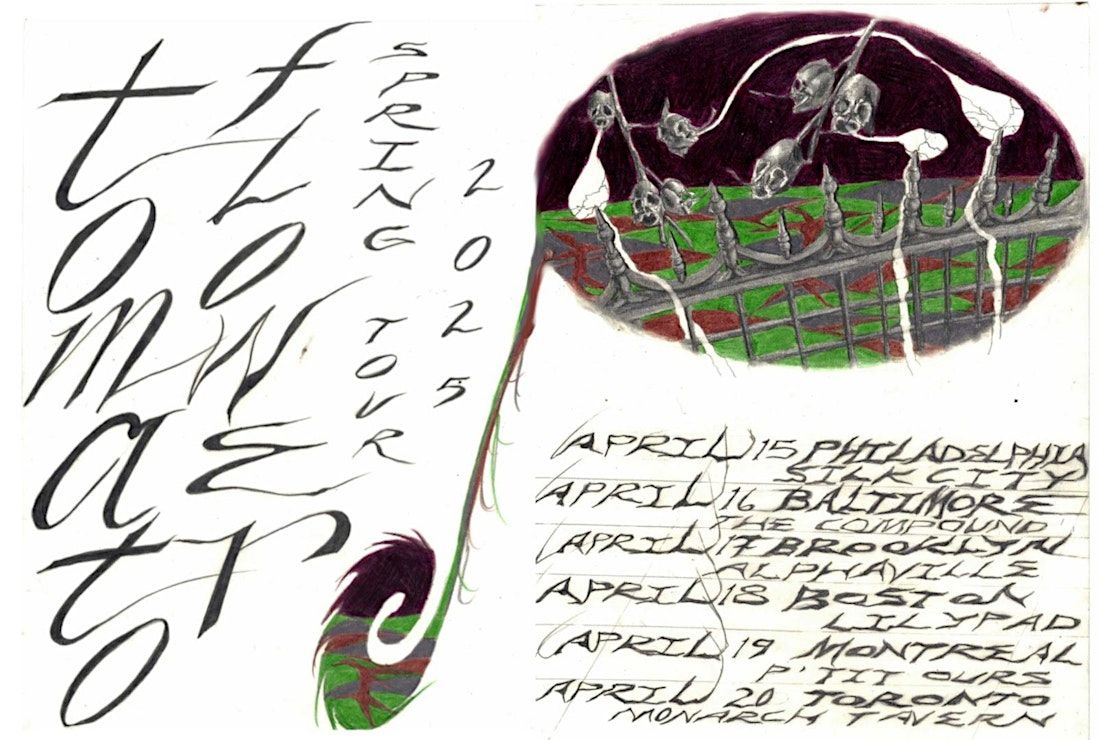 tomato
flower
SPRING TOUR
2025
APRIL 15 PHILADELPHIA
SILK CITY
APRIL 16 BALTIMORE
THE COMPOUND
APRIL 17 BROOKLYN
ALPHAVILLE
APRIL 18 BOSTON
LILYPAD
APRIL 19 MONTREAL
P'TIT OURS
APRIL 20 TORONTO
MONARCH TAVERN